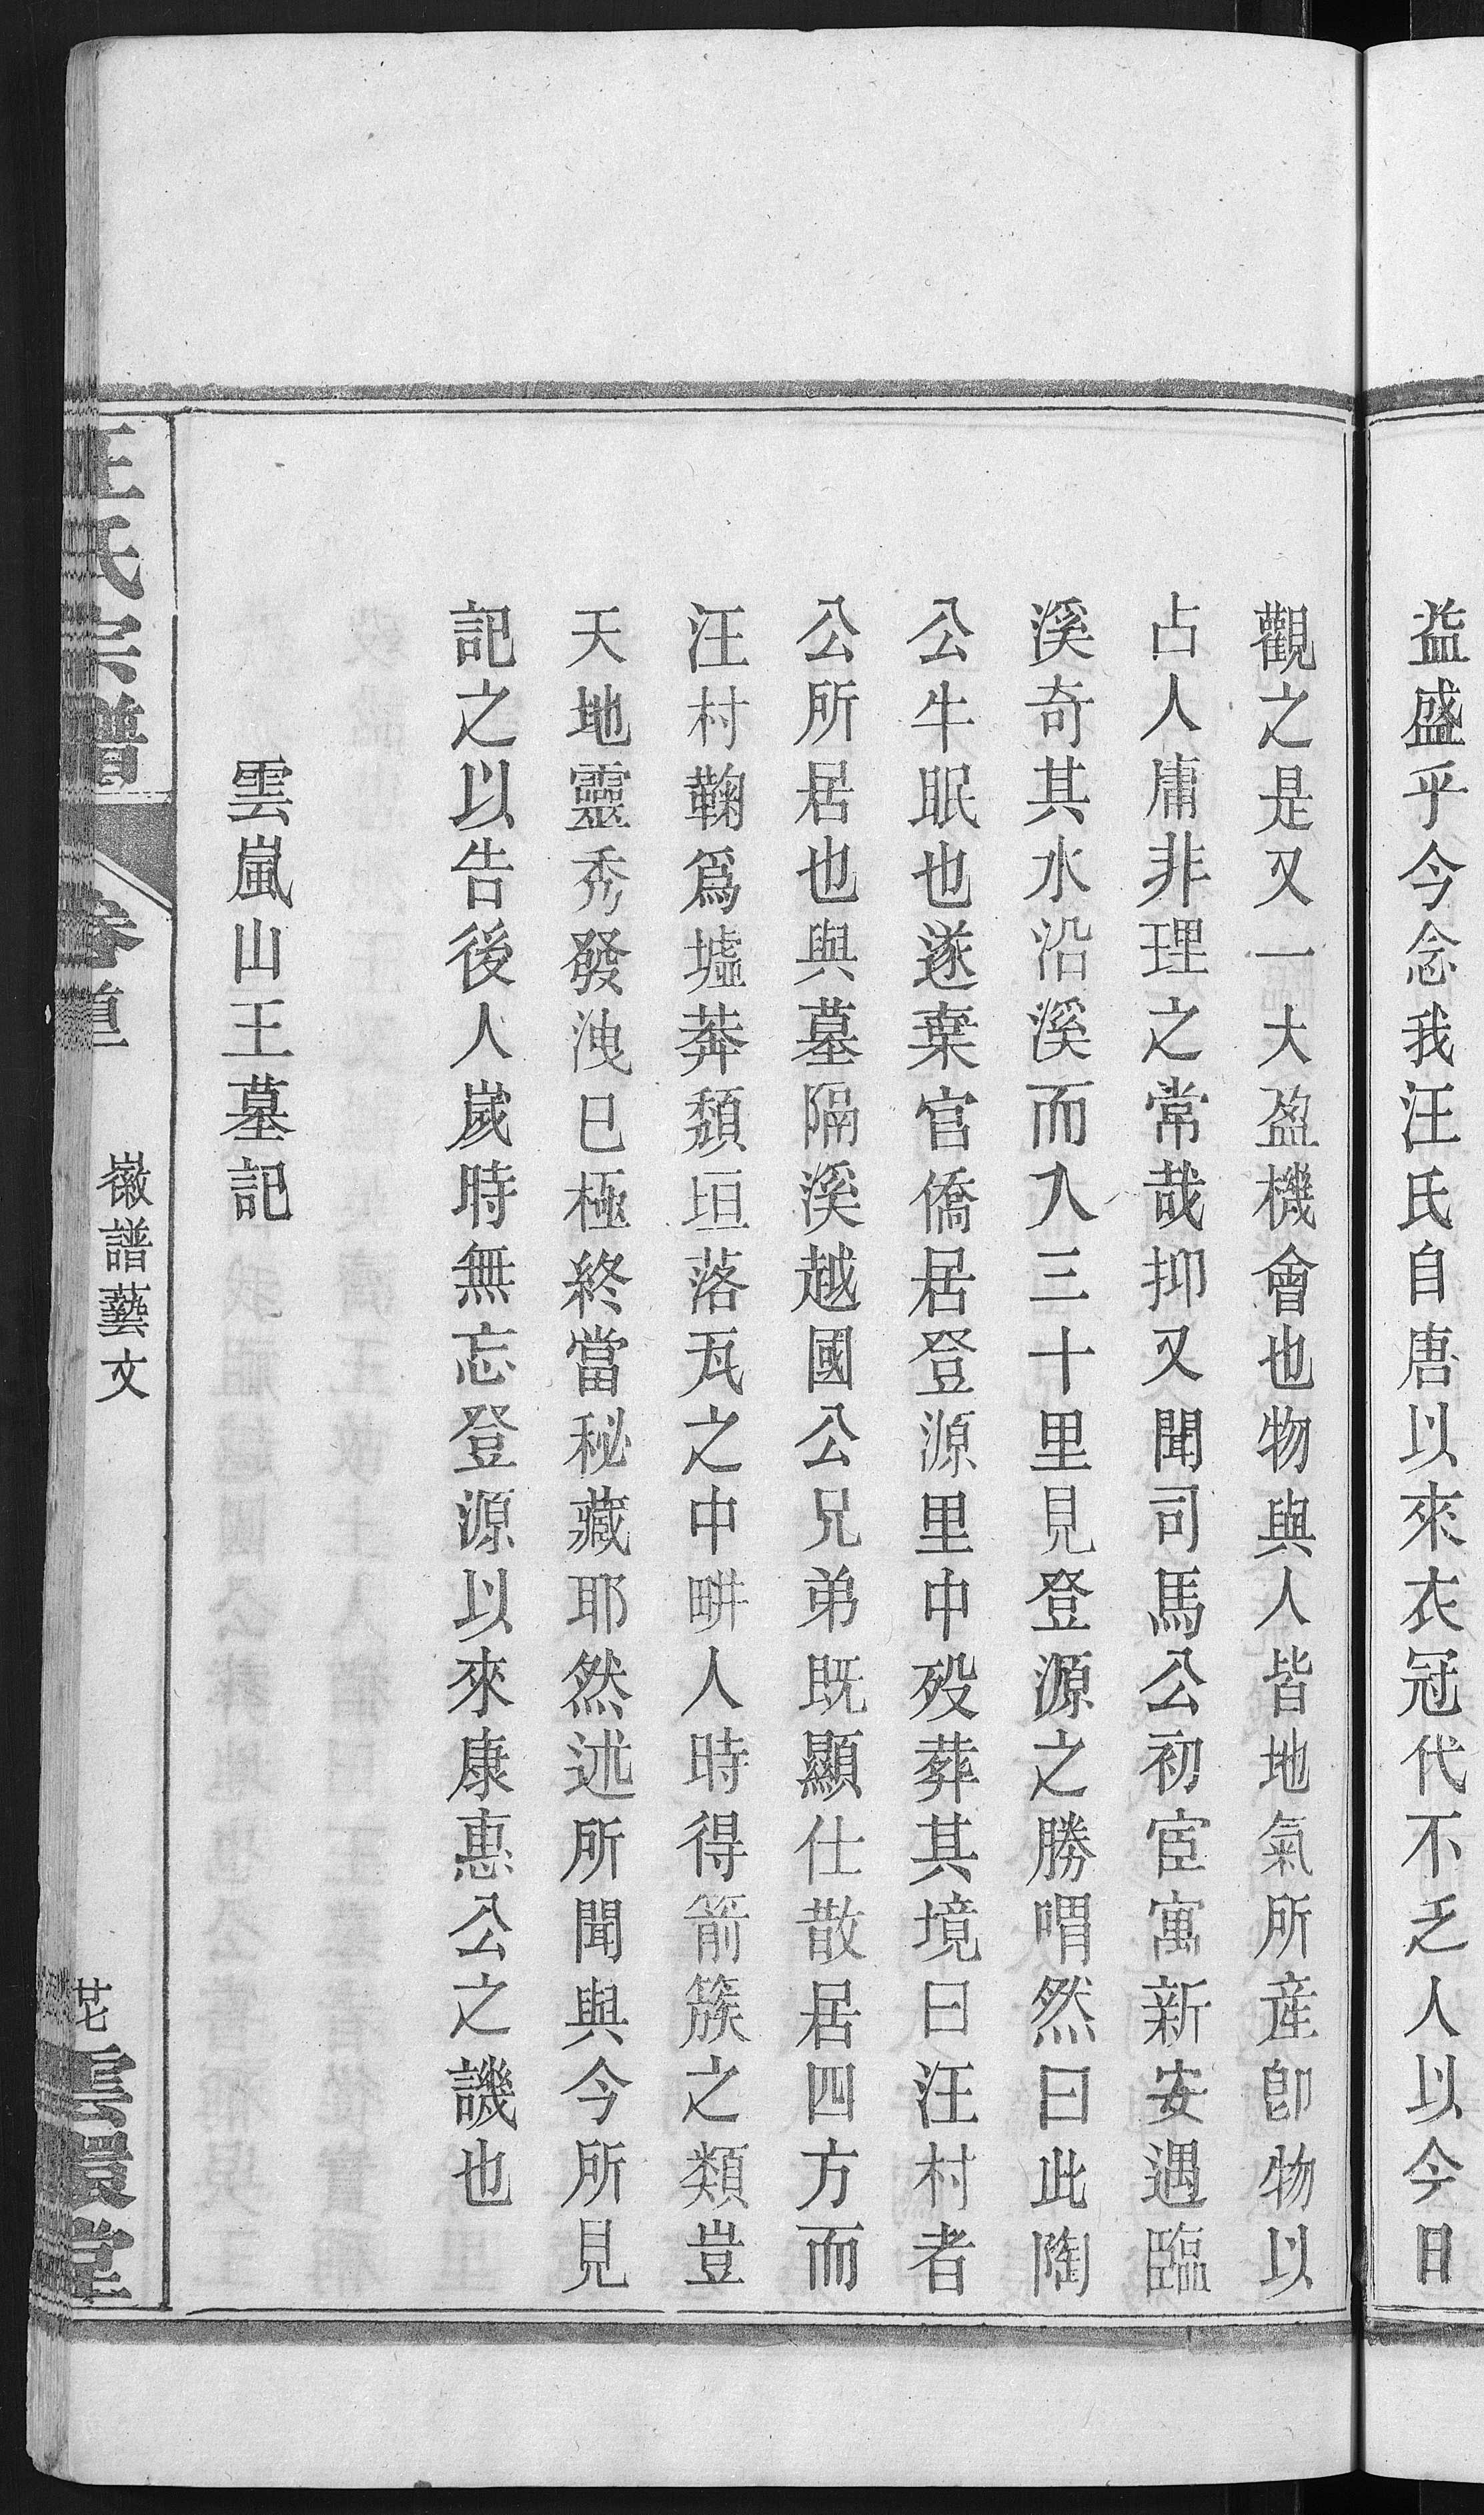 益盛乎今念我汪氏自唐以來衣冠代不乏人以今日
觀之是又一大盈機會也物與人皆地氣所産卽物以
占人庸非理之常哉抑又聞司馬公初宦寓新安遇臨
溪奇其水沿溪而入三十里見登源之勝喟然曰此陶
公牛眠也遂棄官僑居登源里中歿葬其境曰汪村者
公所居也與墓隔溪越國公兄弟既顯仕散居四方而
汪村鞠爲墟莽頹垣落瓦之中畊人時得箭簇之類豈
天地靈秀發洩已極終當秘藏耶然述所聞與今所見
記之以告後人歲時無忘登源以來康惠公之譏也
雲嵐山王墓記
汪氏宗譜
卷首
徽譜藝文
廿七
雲環堂